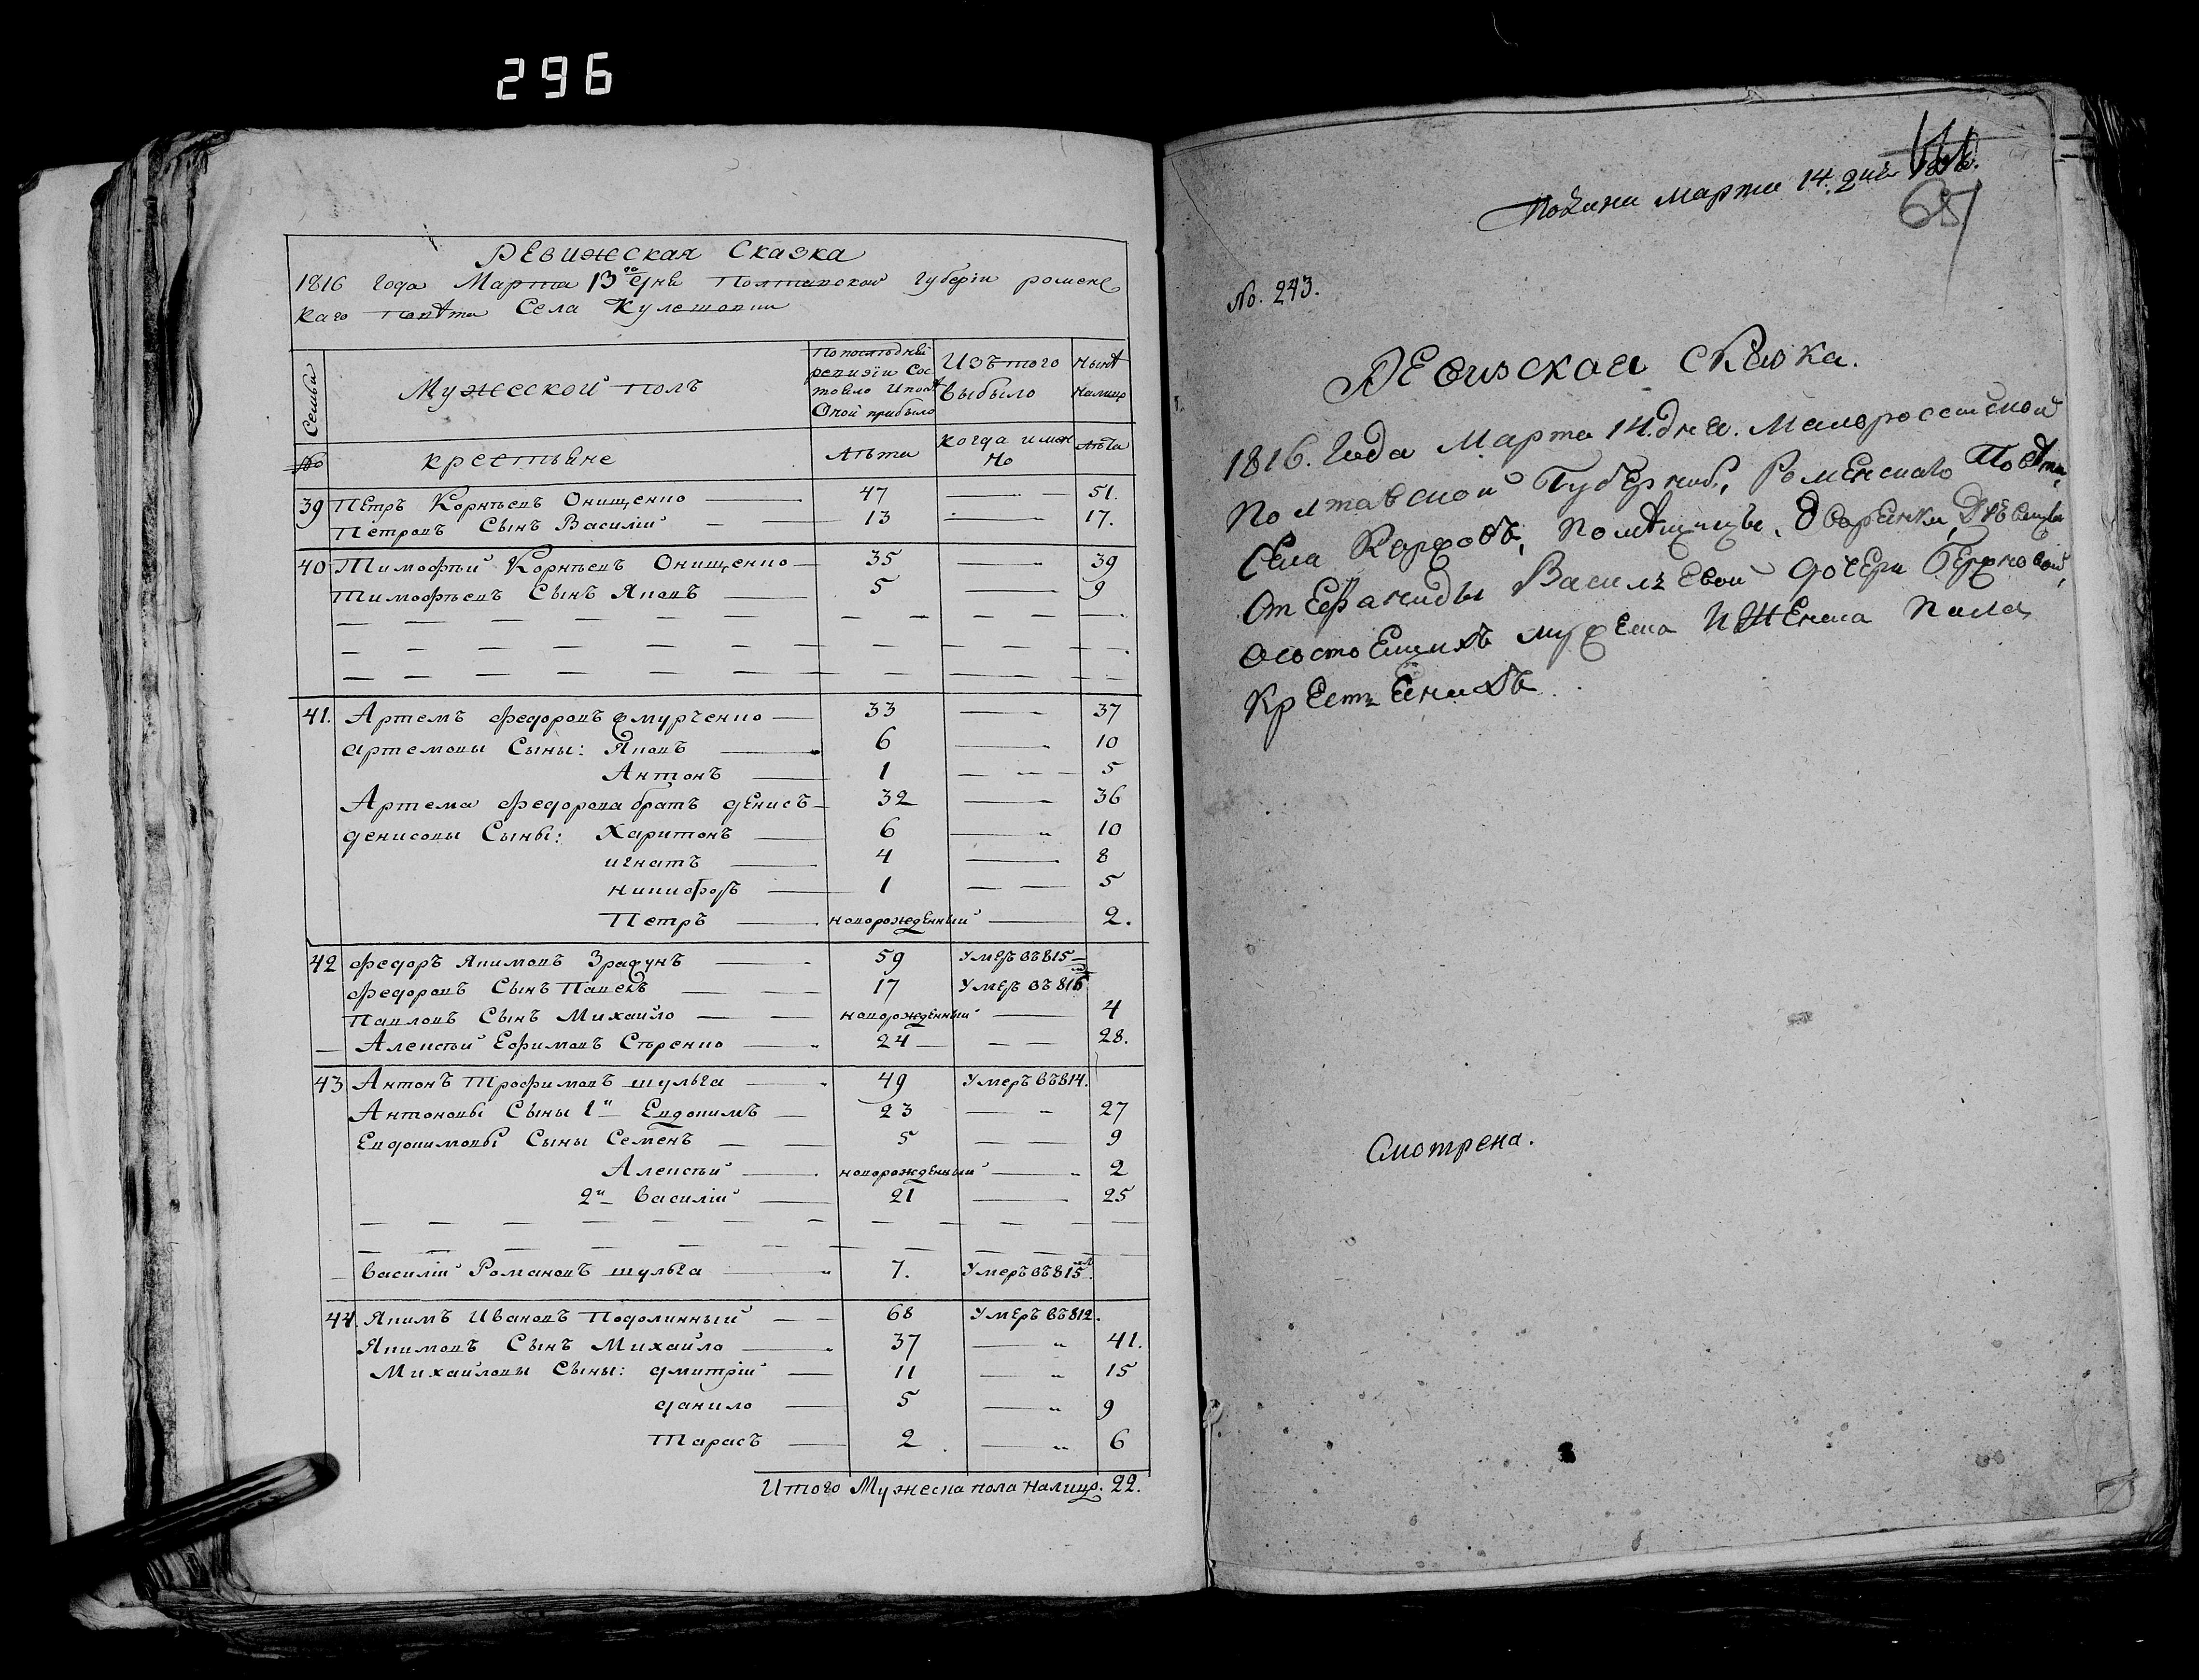 296
Ревижская Сказка
1816 года Марта 13го дня Полтавской губерiи роменс
каго повѣта Села Кулешовки
Семьи
Мужеской полъ
По последней
ревизiи Сос
тояло и после
Оной прибыло
Изъ того
выбыло
Нынѣ
налицо
№
крестьяне
Лѣта
когда имен
но
лѣта
39 Петръ Корнѣевъ Онищенко 47 51.
Петровъ Сынъ Василiй 13 17.
40 Тимофѣй Корнѣевъ Онищенко 35 39
Тимофѣевъ Сынъ Яковъ 5 9
41. Артемъ федоровъ дмурченко 33 37
артемовы Сыны: Яковъ 6 10
Антонъ 1 5
Артема федорова братъ денисъ 32 36
денисовы Сыны: Харитонъ 6 10
игнатъ 4 8
никифоръ 1 5
Петръ новорожденный 2.
42 федоръ Якимовъ 59 Умеръ въ 815
федоровъ Сынъ Павелъ 17 Умеръ въ 815
Павловъ Сынъ Михайло новорожденный 4
Алексѣй Ефимовъ Сѣренко 24 28.
43 Антонъ Трофимовъ шульга 49 Умеръ въ 814.
Антоновы Сыны 1й Евдокимъ 23 27
Евдокимовы Сыны Семенъ 5 9
Алексѣй новорожденный 2
2й василiй 21 25
василiй Романовъ шульга 7. Умеръ въ 815
44. Якимъ Ивановъ Подолинный 68 Умеръ въ 812.
Якимовъ Сынъ Михайло 37 41.
Михайловы Сыны: дмитрiй 11 15
данило 5 9
Тарасъ 2 6
Итого Мужеска пола налицо. 22.
Марта 14.
67
No. 243.
Ревизская скаска.
1816. Года Марта 14. дня. Малоросстской
Полтавской Губернiи, Роменскаго Повѣта,
Села помѣщицы, дворянки, Дѣвицы
Васильевой дочери
осостоящихъ мужеска и женска пола
крестьянахъ.
Смотрена.